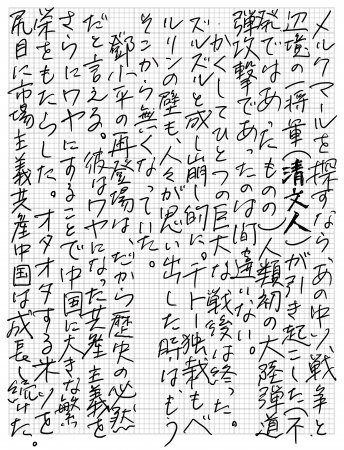 メルクマールを探すなら、あの中ソ戦争と
辺境の一将軍(清文人)が引き起こした(不
発ではあったものの)人類初の大陸弾道
弾攻撃であったのは間違いない。
かくしてひとつの巨大な「戦後は終った。
ズルズルと成し崩し的に。チトー独裁もベ
ルリンの壁も、人々が思い出した時はもう
そこから無くなっていた。
鄧小平の再登場は、だから歴史の必然
だと言える。彼はワヤになった共産主義を
さらにワヤにすることで中国に大きな繁
栄をもたらした。オタオタする米ソを
尻目に市場主義共産中国は成長し続けた。